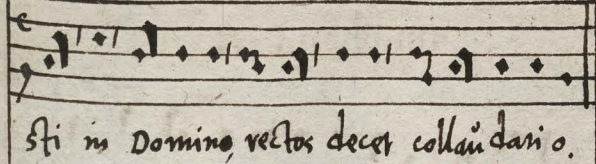 sti in Domino, rectos decet collaudatio.